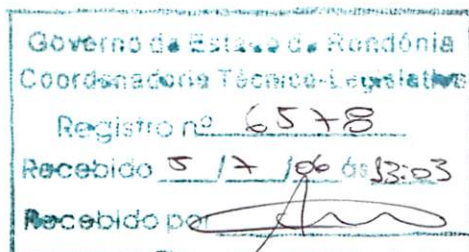 Governo do Estado de Rondônia
Coordenadoria Técnico-Legislativa
Registro nº 6578
Recebido 5 / 7 / 06 às 13:03
Recebido por